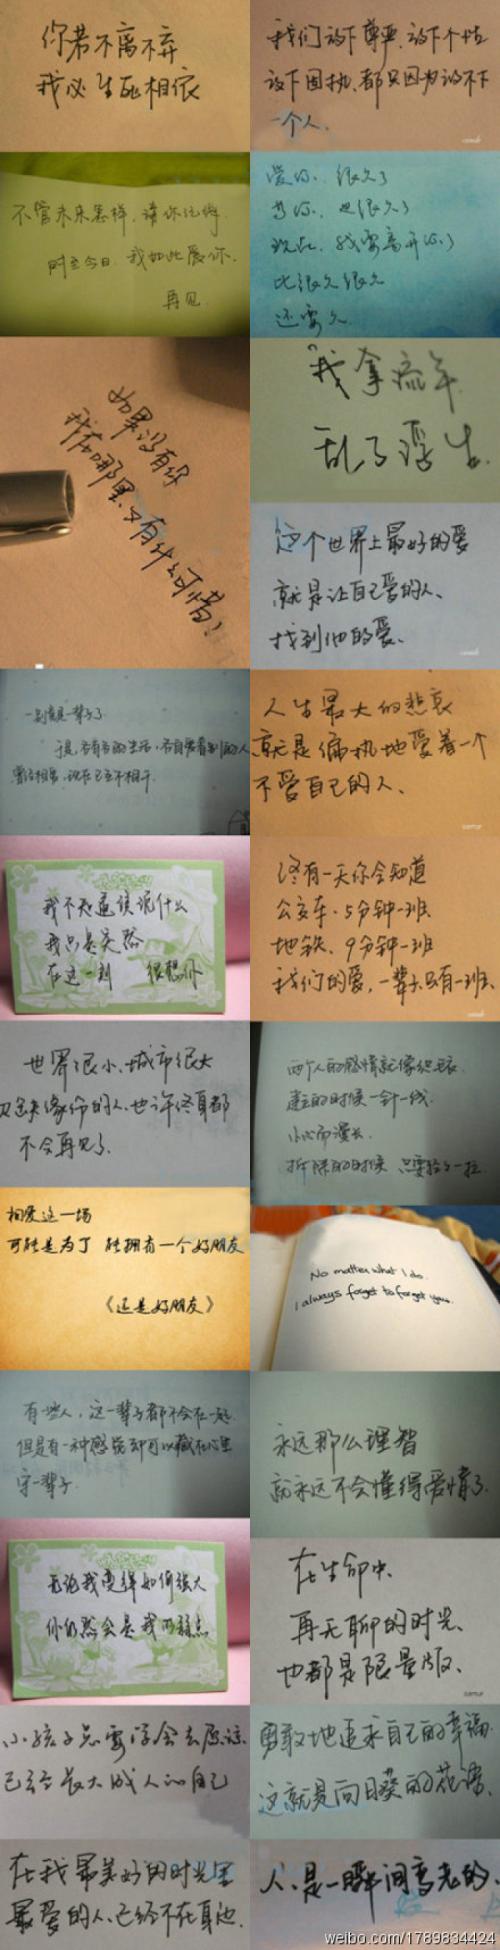 你若不离不弃
我必生死相依
我们放下尊严、放下个性
放下固执、都只因为放不下
一个人、
不管未来怎样，请你记得
时至今日，我如此爱你.
再见
爱你，很久了
等你，也很久了
现在，我要离开你了
比很久很久
还要久
如果没有你
我在哪里、又有什么可惜！
我拿流年
乱了浮生
这个世界上最好的爱
就是让自己爱的人、
找到他的爱、
一别竟是一辈子了
于是，各有各的生活，各自爱着别的人
曾经相爱，现在已互不相干.
人生最大的悲哀
就是偏执地爱着一个
不爱自己的人、
我不知道该说什么
我只是突然
在这一刻 很想你
终有一天你会知道
公交车、5分钟一班
地铁、9分钟一班
我们的爱，一辈子只有一班、
世界很小、城市很大
没缘份的人、也许终身都
不会再见了、
两个人的感情就像织毛衣、
建立的时候一针一线、
小心而漫长、
拆除的时候 只要轻轻一拉
相爱这一场
可能是为了 能拥有一个好朋友
《还是好朋友》
No matter what I do.
I always forget to forget you.
有些人，这一辈子都不会在一起
但是有一种感觉却可以藏在心里
守一辈子
永远那么理智
就永远不会懂得爱情了
无论我变得如何强大
你仍然会是我的弱点
在生命中、
再无聊的时光、
也都是限量版、
小孩子总要学会去原谅
已经长大成人的自己
勇敢地追求自己的幸福
这就是向日葵的花语、
在我最美好的时光里
最爱的人、已经不在身边、
人、是一瞬间变老的、
weibo.com/1789834424